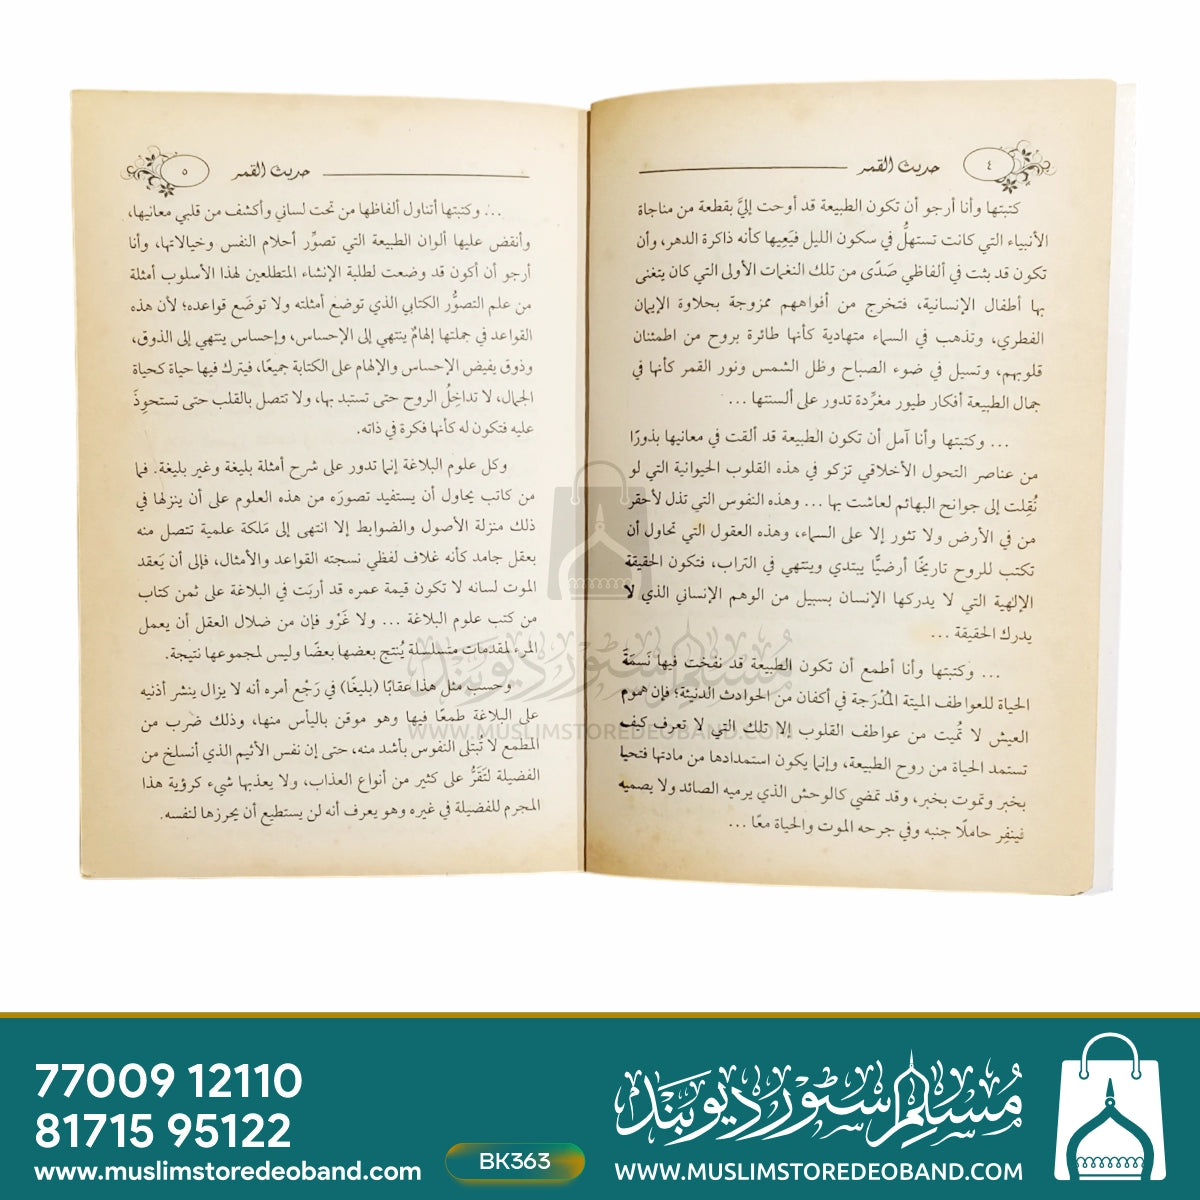 ٤
حديث القمر
كتبتها وأنا أرجو أن تكون الطبيعة قد أوحت إليَّ بقطعة من مناجاة
الأنبياء التي كانت تستهلُّ في سكون الليل فيَعِيها كأنه ذاكرة الدهر، وأن
تكون قد بثت في ألفاظي صَدًى من تلك النغمات الأولى التي كان يتغنى
بها أطفال الإنسانية، فتخرج من أفواههم ممزوجة بحلاوة الإيمان
الفطري، وتذهب في السماء متهادية كأنها طائرة بروح من اطمئنان
قلوبهم، وتسيل في ضوء الصباح وظل الشمس ونور القمر كأنها في
جمال الطبيعة أفكار طيور مغرِّدة تدور على ألسنتها ...
... وكتبتها وأنا آمل أن تكون الطبيعة قد ألقت في معانيها بذورًا
من عناصر التحول الأخلاقي تزكو في هذه القلوب الحيوانية التي لو
نُقِلت إلى جوانح البهائم لعاشت بها ... وهذه النفوس التي تذل لأحقر
من في الأرض ولا تثور إلا على السماء، وهذه العقول التي تحاول أن
تكتب للروح تاريخًا أرضيًّا يبتدي وينتهي في التراب، فتكون الحقيقة
الإلهية التي لا يدركها الإنسان بسبيل من الوهم الإنساني الذي لا
يدرك الحقيقة ...
... وكتبتها وأنا أطمع أن تكون الطبيعة قد نفخت فيها نَسَمَةَ
الحياة للعواطف الميتة المُدْرَجة في أكفان من الحوادث الدنيئة؛ فإن هموم
العيش لا تُميت من عواطف القلوب إلا تلك التي لا تعرف كيف
تستمد الحياة من روح الطبيعة، وإنما يكون استمدادها من مادتها فتحيا
بخبر وتموت بخبر، وقد تمضي كالوحش الذي يرميه الصائد ولا يصميه
فينفِر حاملًا جنبه وفي جرحه الموت والحياة معًا ...
٥
حديث القمر
... وكتبتها أتناول ألفاظها من تحت لساني وأكشف من قلبي معانيها،
وأنقض عليها ألوان الطبيعة التي تصوِّر أحلام النفس وخيالاتها، وأنا
أرجو أن أكون قد وضعت لطلبة الإنشاء المتطلعين لهذا الأسلوب أمثلة
من علم التصوُّر الكتابي الذي توضع أمثلته ولا توضَع قواعده؛ لأن هذه
القواعد في جملتها إلهامٌ ينتهي إلى الإحساس، وإحساس ينتهي إلى الذوق،
وذوق يفيض الإحساس والإلهام على الكتابة جميعًا، فيترك فيها حياة كحياة
الجمال، لا تداخِلُ الروح حتى تستبد بها، ولا تتصل بالقلب حتى تستحوِذَ
عليه فتكون له كأنها فكرة في ذاته.
وكل علوم البلاغة إنما تدور على شرح أمثلة بليغة وغير بليغة. فما
من كاتب يحاول أن يستفيد تصورَه من هذه العلوم على أن ينزلها في
ذلك منزلة الأصول والضوابط إلا انتهى إلى مَلكة علمية تتصل منه
بعقل جامد كأنه غلاف لفظي نسجته القواعد والأمثال، فإلى أن يَعقد
الموت لسانه لا تكون قيمة عمره قد أربَت في البلاغة على ثمن كتاب
من كتب علوم البلاغة ... ولا غَرْو فإن من ضلال العقل أن يعمل
المرء لمقدمات متسلسلة يُنتج بعضها بعضًا وليس لمجموعها نتيجة.
وحسب مثل هذا عقابًا (بليغًا) في رَجْع أمره أنه لا يزال ينشر أذنيه
على البلاغة طمعًا فيها وهو موقن بالبأس منها، وذلك ضرب من
المطمع لا تُبتلى النفوس بأشد منه، حتى إن نفس الأثيم الذي أنسلخ من
الفضيلة لتَقَرُّ على كثير من أنواع العذاب، ولا يعذبها شيء كرؤية هذا
المجرم للفضيلة في غيره وهو يعرف أنه لن يستطيع أن يحرزها لنفسه.
مسلم سٹور دیوبند
WWW.MUSLIMSTOREDEOBAND.COM
77009 12110
81715 95122
www.muslimstoredeoband.com
BK363
مسلم سٹور دیوبند
WWW.MUSLIMSTOREDEOBAND.COM